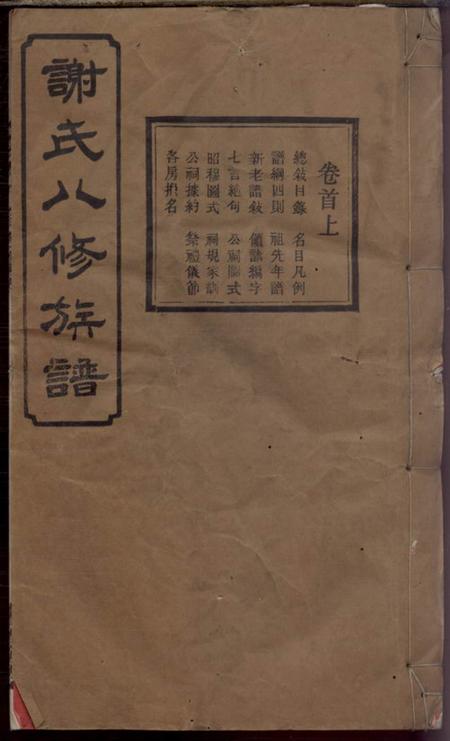 謝氏八修族譜
卷首上
總敘目錄 名目凡例
譜綱四則 祖先年譜
新老譜敘 領譜編字
七言絶句 公祠圖式
昭穆圖式 祠規家訓
公祠據約 祭禮儀節
各房捐名